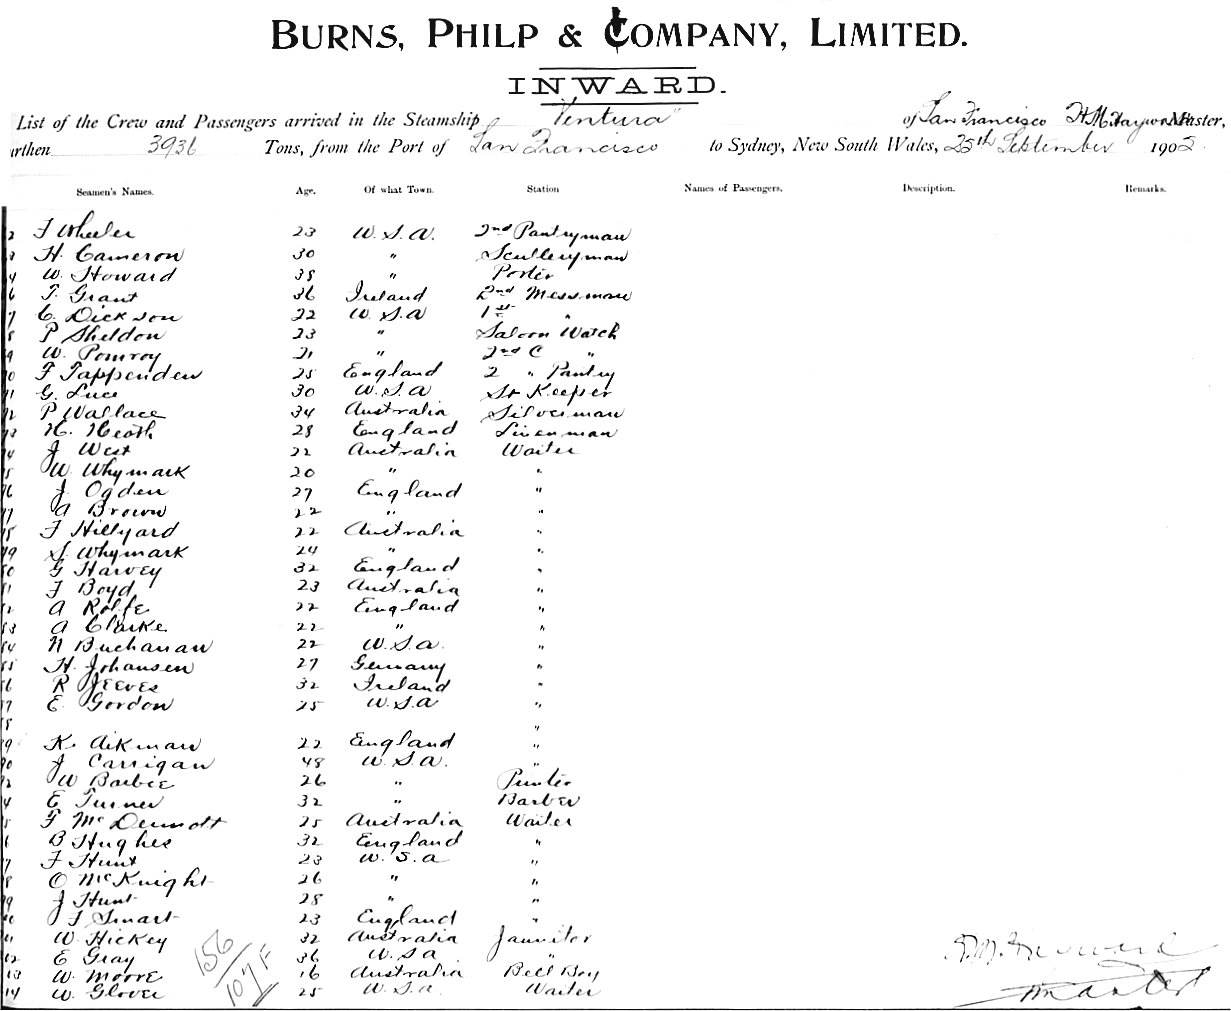 BURNS, PHILP & COMPANY, LIMITED.
INWARD.
List of the Crew and Passengers arrived in the Steamship "Ventura" of San Francisco H.M. Hayward Master,
urthen 3936 Tons, from the Port of San Francisco to Sydney, New South Wales, 25th September 1902
Seamen's Names. Age. Of what Town. Station Names of Passengers. Description. Remarks.
2 F Wheeler 23 U.S.A. 2nd Pantryman
3 H. Cameron 30 " Sculleryman
4 W. Howard 38 " Porter
6 T. Grant 36 Ireland 2nd Messman
7 C. Dickson 22 U.S.A 1st "
8 P Sheldon 23 " Saloon Watch
9 W. Pomroy 21 " 2nd C "
70 F Tappenden 25 England 2 " Pantry
71 G. Luce 30 U.S.A St Keeper
72 P Wallace 34 Australia Silverman
73 H. Heath 28 England Linenman
74 J West 22 Australia Waiter
75 W. Whymark 20 " "
76 J. Ogden 27 England "
77 A Brown 22 " "
78 F Hillyard 22 Australia "
79 S. Whymark 24 " "
80 G Harvey 32 England "
81 F Boyd 23 Australia "
82 A Rolfe 22 England "
83 A Clarke 22 " "
84 N Buchanan 22 U.S.A. "
85 H. Johansen 27 Germany "
86 R Jeeves 32 Ireland "
87 E. Gordon 25 U.S.A "
88 "
89 K. Aikman 22 England "
90 J Carrigan 48 U.S.A. "
92 W Barbee 26 " Printer
94 E Turner 32 " Barber
5 F McDermott 25 Australia Waiter
6 B Hughes 32 England "
7 F Hunt 23 U.S.A "
8 O McKnight 26 " "
99 J Hunt 28 " "
F Smart 23 England "
01 W. Hickey 32 Australia Jannitor
02 E Gray 36 U.S.A "
13 W. Moore 16 Australia Bell Boy
14 W. Glover 25 U.S.A. Waiter
156
107 F
H.M. Hayward
Master